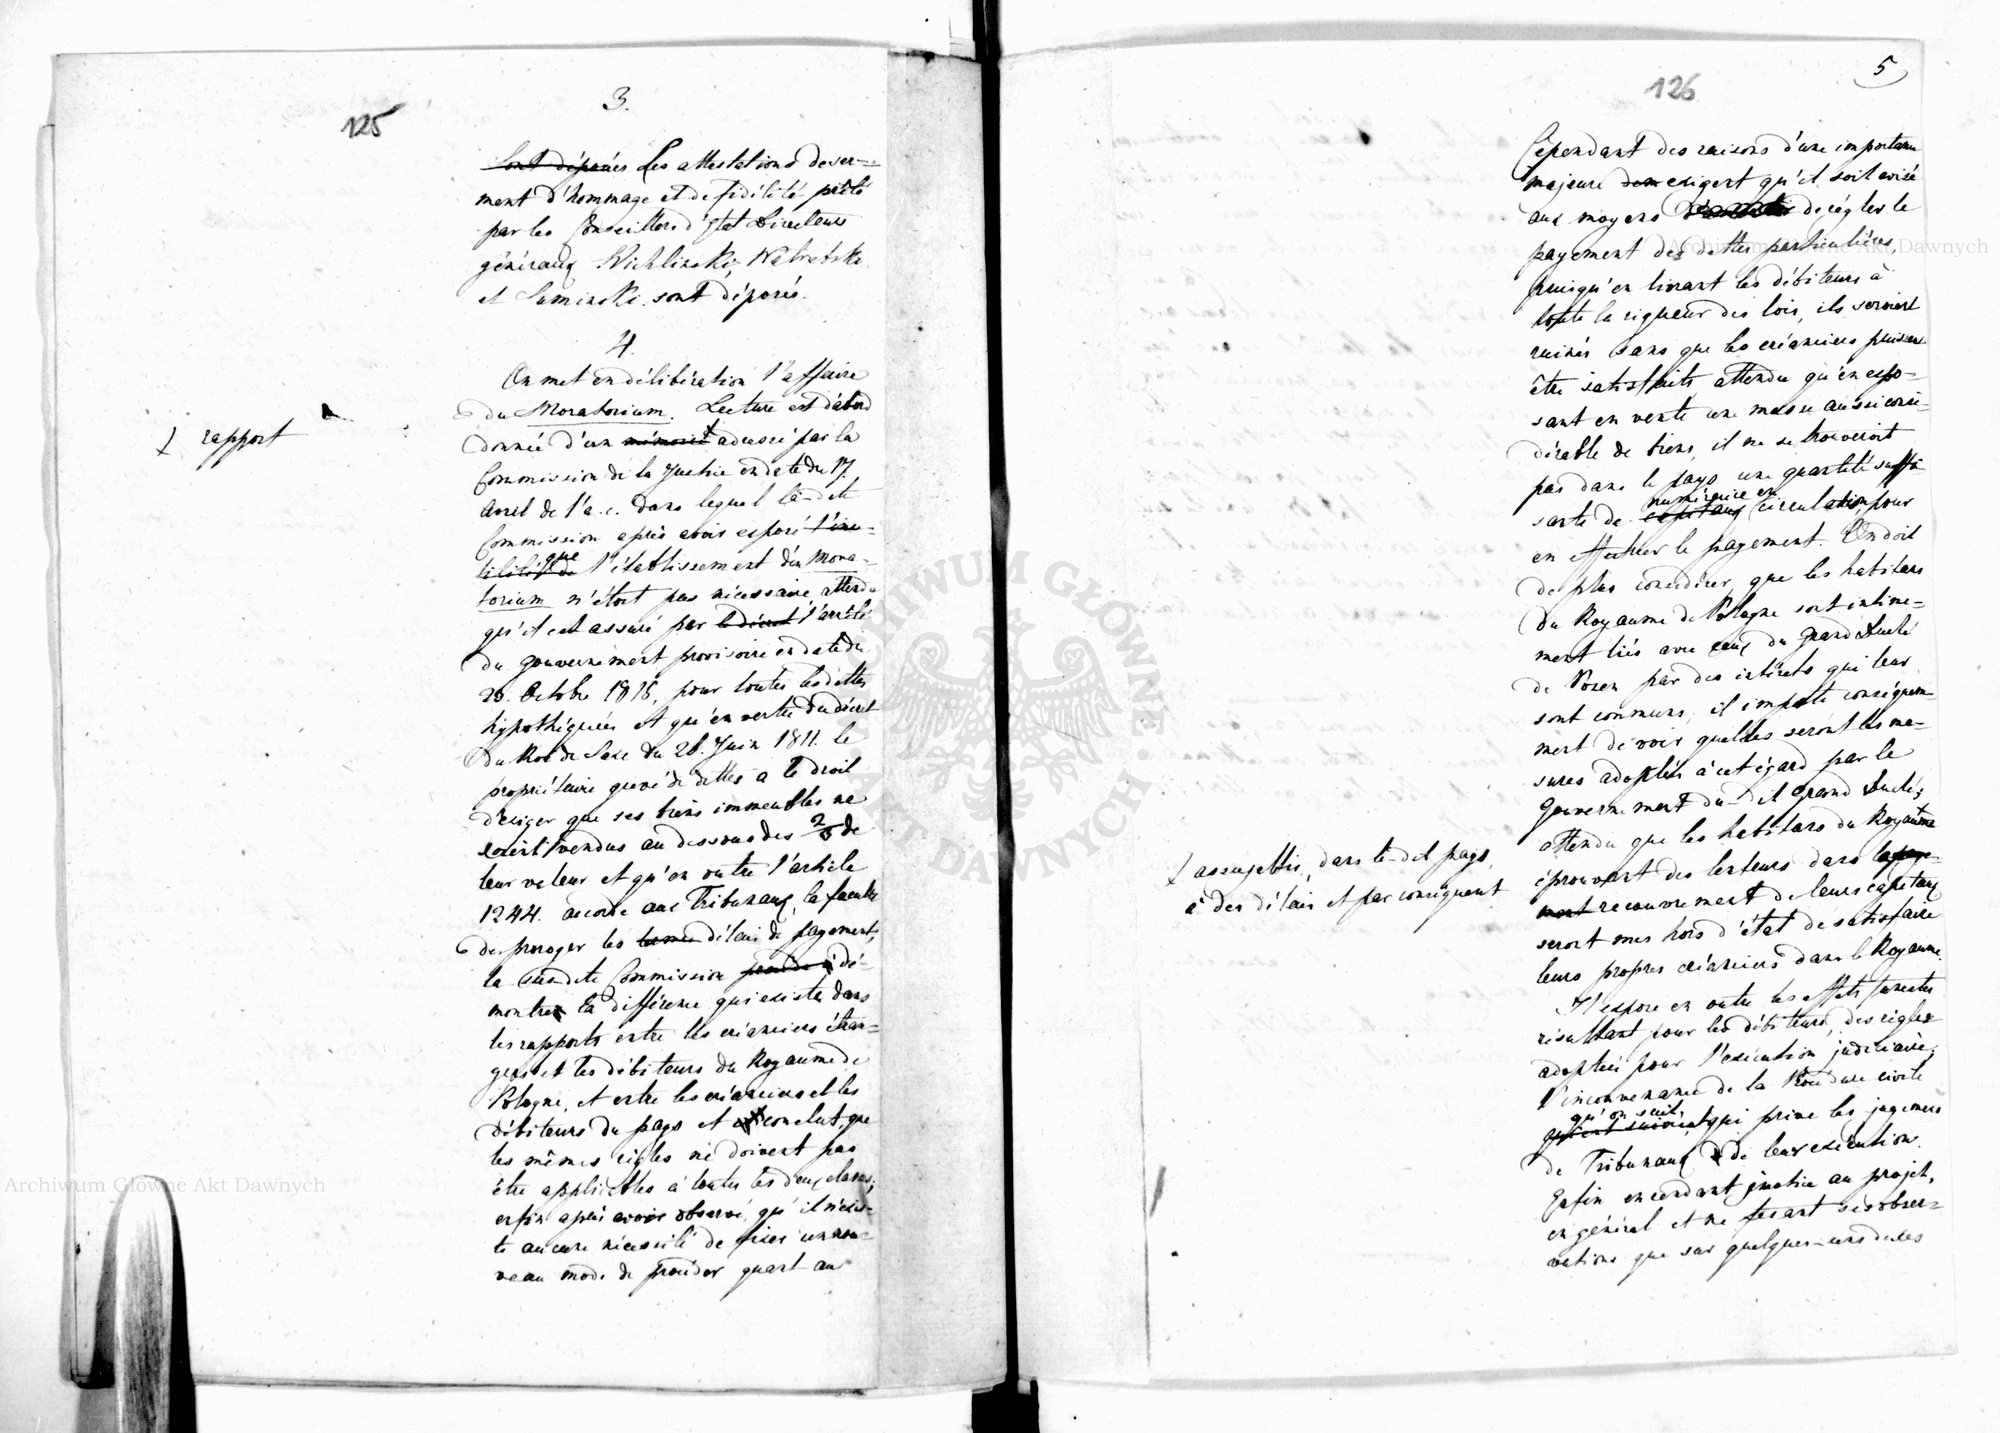 125
3.
Sont déposés Les attestations de ser-
ment d'hommage et de fidélité prêté
par les Conseillers d'Etat Directeurs
généraux
et sont déposés.
4.
On met en délibération l'affaire
du Moratorium. Lecture est d'abord
donnée d'un mémoire adressé par la
⨍ rapport
Commission de la Justice en date du 17.
Avril de l'a. c. dans lequel la-dite
Commission après avoir exposé l'inu-
tilité de que l'établissement d'un Mora-
torium n'étoit pas nécessaire, attendu
qu'il est assuré par le décret l'arrêté
du gouvernement provisoire en date du
Octobre 1815, pour toutes les dettes
hypothéquées et qu'en vertu du décret
du Roi de Saxe du 26. Juin 1811. le
propriétaire grevé de dettes a le droit
d'exiger que ses biens immeubles ne
soient vendus au dessous des 2/3 de
leur valeur et qu'en outre l'article
1244. accorde aux Tribunaux, la faculté
de proroger les termes délais de payement,
la susdite Commission procède à dé-
montrer la différence qui existe dans
les rapports entre les créanciers étran-
gers et les débiteurs du Royaume de
Pologne, et entre les créanciers et les
débiteurs du pays et conclut, que
les mêmes règles ne doivent pas
être applicables à toutes les deux classes;
enfin après avoir observé, qu'il n'exis-
te aucune nécessité de fixer un nou-
veau mode de procéder quant au
5
126
Cependant des raisons d'une importance
majeure exigent qu'il soit avisé
aux moyens de régler le
payement des dettes particulières,
puisqu'en livrant les débiteurs à
toute la rigueur des lois, ils seroient
ruinés sans que les créanciers puissent
être satisfaits, attendu qu'en expo-
sant en vente une masse aussi consi-
dérable de biens, il ne se trouveroit
pas dans le pays une quantité suffi-
sante de capitaux numéraire en circulation, pour
en effectuer le payement. On doit
de plus considérer, que les habitans
du Royaume de Pologne sont intime-
ment liés avec ceux du grand Duché
de Posen par des intérêts qui leur
sont communs, il importe conséquem-
ment de voir quelles seront les me-
sures adoptées à cet égard par le
Gouvernement du-dit grand Duché;
attendu que les habitans du Royaume
⨍ assujettis, dans le-dit pays,
à des délais et par conséquent
éprouvant des lenteurs dans le paye-
ment recouvrement de leurs capitaux
seront mis hors d'état de satisfaire
leurs propres créanciers dans le Royaume.
Il expose en outre les effets funestes
résultant pour les débiteurs, des règles
adoptées pour l'exécution judiciaire;
l'inconvenance de la Procédure civile
qu'on suit, qui prive les jugemens
de Tribunaux de leur exécution.
Enfin en rendant justice au projet,
en général et ne fesant ses obser-
vations que sur quelques-unes de ses